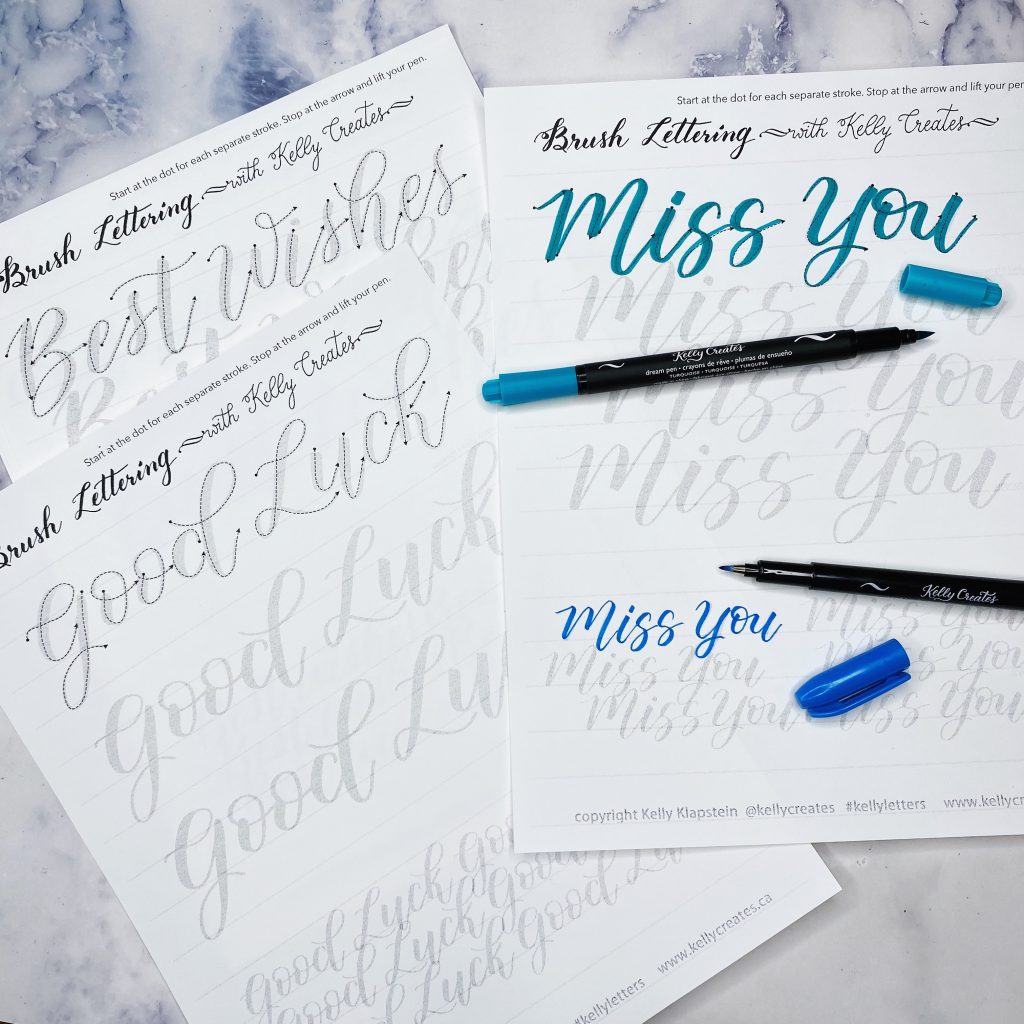 Start at the dot for each separate stroke. Stop at the arrow and lift your pen.
Brush Lettering with Kelly Creates
Best Wishes
Start at the dot for each separate stroke. Stop at the arrow and lift your pen.
Brush Lettering with Kelly Creates
Good Luck
Good Luck
Good Lu
Good Luck Goo
Good Luck Good
Good Luck Good Lu
#kellyletters www.kellycreates.ca
Start at the dot for each separate stroke. Stop at the arrow and lift your pen
Brush Lettering with Kelly Creates
Miss You
Miss You
Miss You
Miss You
Kelly Creates
dream pen • crayons de rêve • plumas de ensueño
TURQUOISE • TURQUOISE • TURQUESA
Kelly Creates
Miss You Miss You
Miss You Miss You
Miss You Miss You
copyright Kelly Klapstein @kellycreates #kellyletters www.kellycr